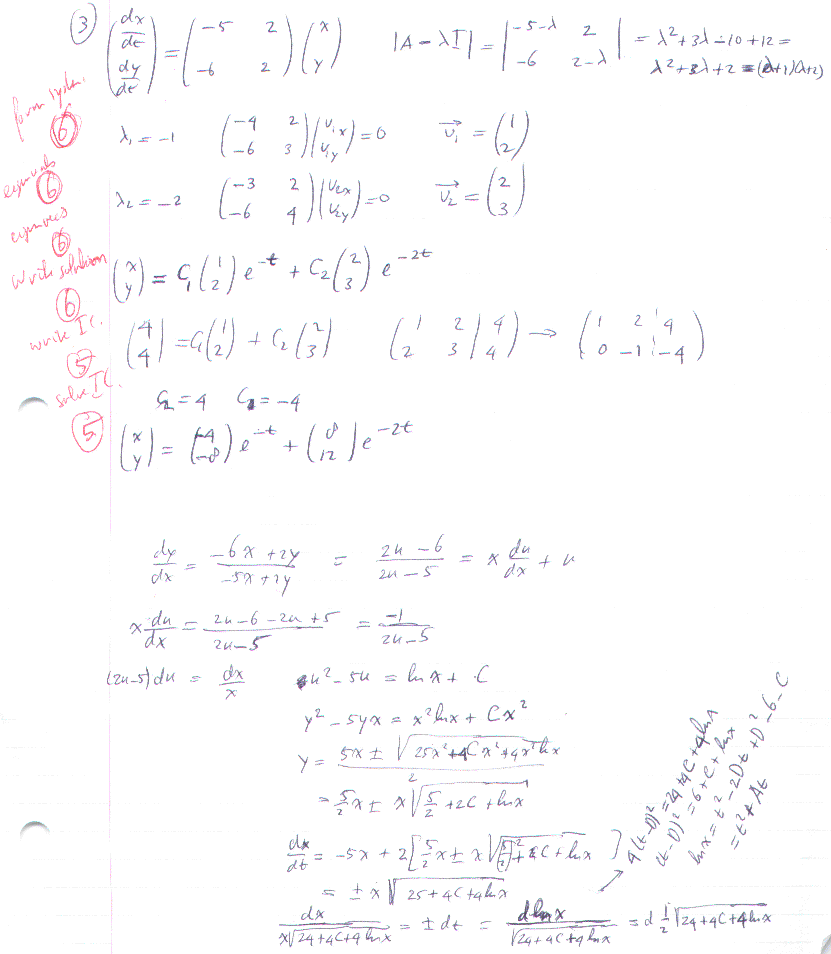 ③ (dx/dt dy/dt) = (-5 2 -6 2)(x y) |A - λI| = |-5-λ 2 -6 2-λ| = λ²+3λ-10+12 =
λ²+3λ+2 = (λ+1)(λ+2)
form system
⑥
λ₁ = -1 (-4 2 -6 3)(v₁ₓ v₁y) = 0 v₁ = (1 2)
eigenvals
⑥
λ₂ = -2 (-3 2 -6 4)(v₂ₓ v₂y) = 0 v₂ = (2 3)
eigenvecs
⑥
Write solution
(x y) = C₁(1 2)e^-t + C₂(2 3)e^-2t
⑥
write IC.
(4 4) = C₁(1 2) + C₂(2 3) (1 2 | 4 2 3 | 4) → (1 2 | 4 0 -1 | -4)
⑤
solve IC.
C₂ = 4 C₁ = -4
⑤
(x y) = (-4 -8)e^-t + (8 12)e^-2t
dy/dx = (-6x+2y)/(-5x+2y) = (2u-6)/(2u-5) = x du/dx + u
x du/dx = (2u-6-2u+5)/(2u-5) = -1/(2u-5)
(2u-5)du = dx/x u²-5u = ln x + C
y² - 5yx = x² ln x + Cx²
y = (5x ± √(25x²+4Cx²+4x² ln x))/2
= 5/2 x ± x√(5/2 + 2C + ln x)
dx/dt = -5x + 2[5/2 x ± x√((5/2)² + C + ln x)]
= ± x√(25+4C+4 ln x)
dx/(x√(24+4C+4 ln x)) = ± dt = d ln x/√(24+4C+4 ln x) = d ½√(24+4C+4 ln x)
4(t-D)² = 24+4C+4 ln x
(t-D)² = 6+C+ln x
ln x = t²-2Dt+D²-6-C
= t²+At